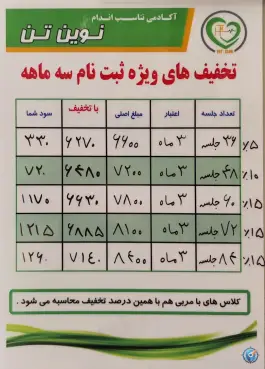 آکادمی تناسب اندام
نوین تن
تخفیف های ویژه ثبت نام سه ماهه
تعداد جلسه اعتبار مبلغ اصلی با تخفیف سود شما
٪۵ ۳۶ جلسه ۳ ماه ۶۶۰۰ ۶۲۷۰ ۳۳۰
٪۱۰ ۴۸ جلسه ۳ ماه ۷۲۰۰ ۶۴۸۰ ۷۲۰
٪۱۵ ۶۰ جلسه ۳ ماه ۷۸۰۰ ۶۶۳۰ ۱۱۷۰
٪۱۵ ۷۲ جلسه ۳ ماه ۸۱۰۰ ۶۸۸۵ ۱۲۱۵
٪۱۵ ۸۴ جلسه ۳ ماه ۸۴۰۰ ۷۱۴۰ ۱۲۶۰
کلاس های با مربی هم با همین درصد تخفیف محاسبه می شود .